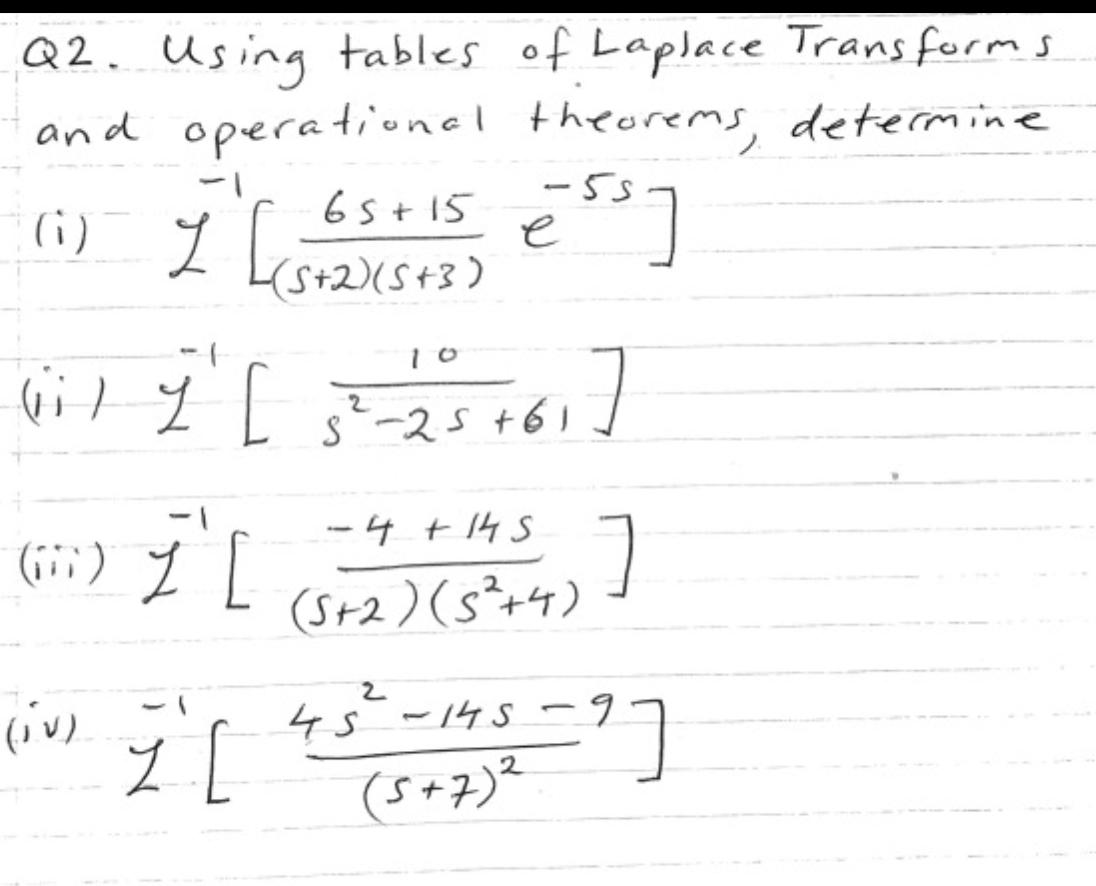 Q2. Using tables of Laplace Transforms
and operational theorems, determine
(i) ℒ⁻¹[ (6s+15)/((s+2)(s+3)) e^(-5s) ]
(ii) ℒ⁻¹[ 10/(s²-2s+61) ]
(iii) ℒ⁻¹[ (-4+14s)/((s+2)(s²+4)) ]
(iv) ℒ⁻¹[ (4s²-14s-9)/(s+7)² ]